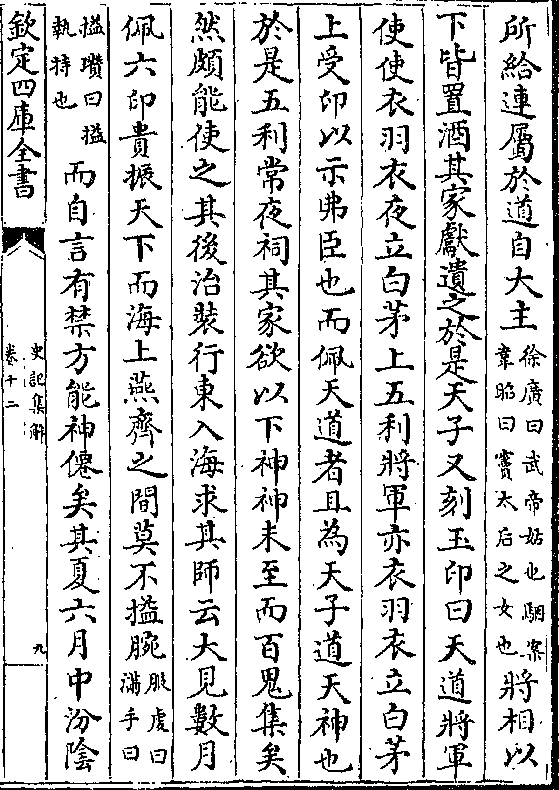 所給連屬於道自大主徐廣曰武帝姑也駰案韋昭曰竇太后之女也將相以
下皆置酒其家獻遺之於是天子又刻玉印曰天道將軍
使使衣羽衣夜立白茅上五利將軍亦衣羽衣立白茅
上受印以示弗臣也而佩天道者且為天子道天神也
於是五利常夜祠其家欲以下神神未至而百鬼集矣
然頗能使之其後治裝行東入海求其師云大見數月
佩六印貴振天下而海上燕齊之間莫不搤腕服虔曰滿手曰
搤瓚曰搤執持也而自言有禁方能神僊矣其夏六月中汾陰
欽定四庫全書
史記集解
卷十二
九